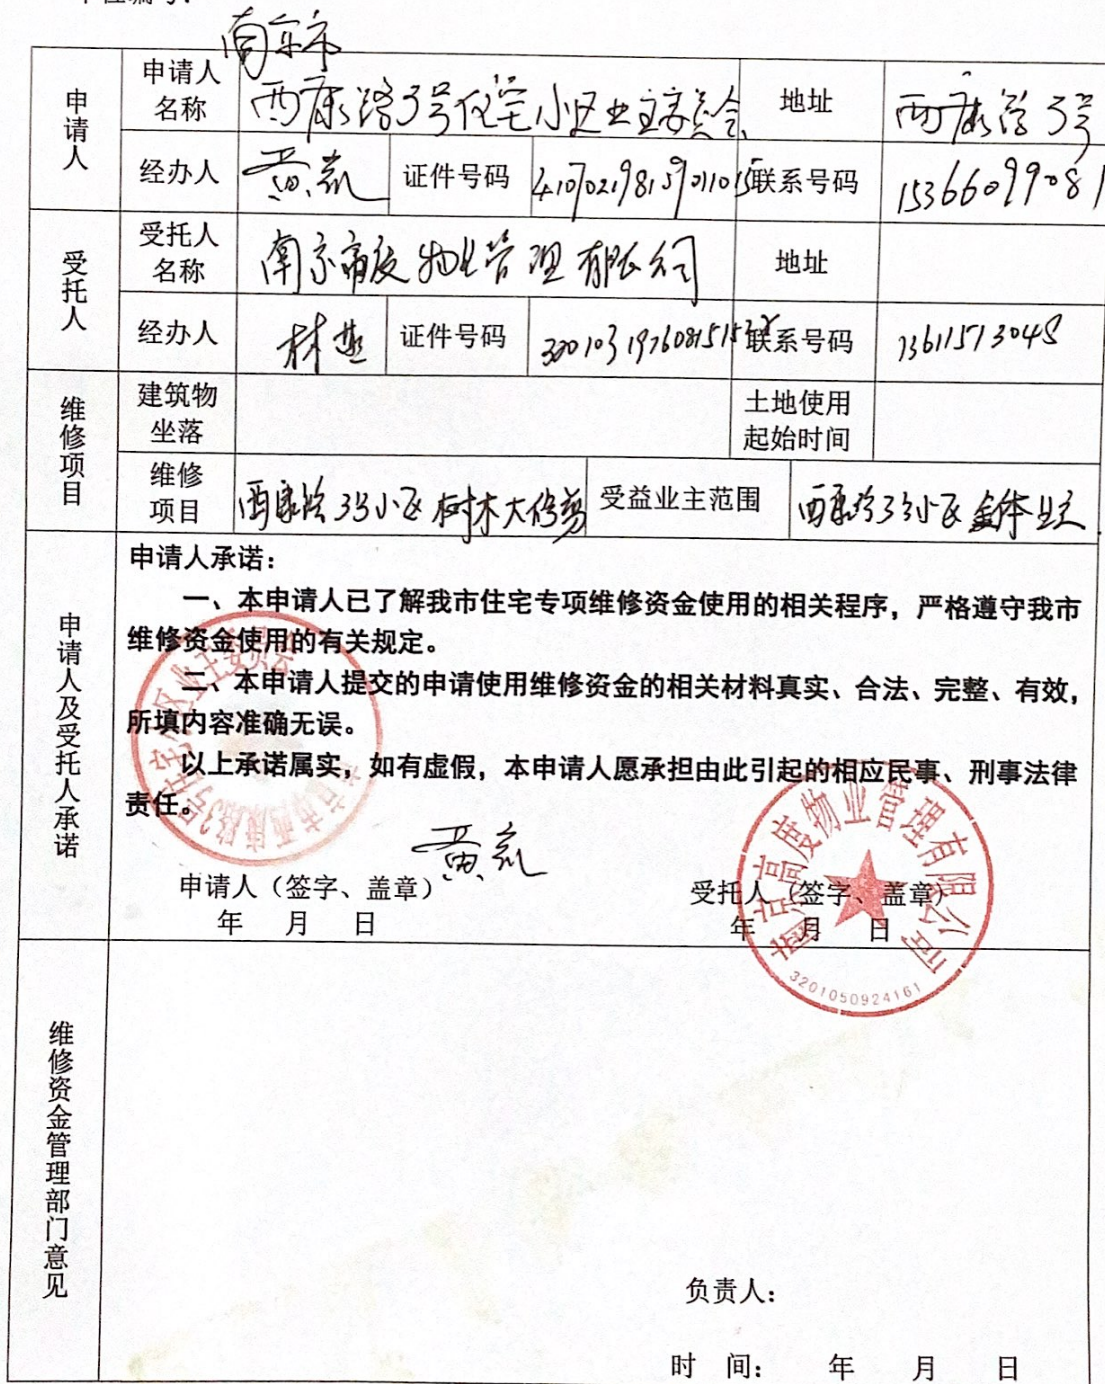 南京市
申请人
申请人名称
西康路3号住宅小区业主委员会
地址
西康路3号
经办人
黄
证件号码
联系号码
15366099081
受托人
受托人名称
南京高度物业管理有限公司
地址
经办人
林
证件号码
联系号码
13611573048
维修项目
建筑物坐落
土地使用起始时间
维修项目
西康路3号小区树木大修剪
受益业主范围
西康路3号小区全体业主
申请人及受托人承诺
申请人承诺：
一、本申请人已了解我市住宅专项维修资金使用的相关程序，严格遵守我市
维修资金使用的有关规定。
二、本申请人提交的申请使用维修资金的相关材料真实、合法、完整、有效，
所填内容准确无误。
以上承诺属实，如有虚假，本申请人愿承担由此引起的相应民事、刑事法律
责任。
南京市西康路3号住宅小区业主委员会
黄
申请人（签字、盖章）
年 月 日
受托人（签字、盖章）
年 月 日
南京高度物业管理有限公司
3201050924161
维修资金管理部门意见
负责人：
时 间： 年 月 日